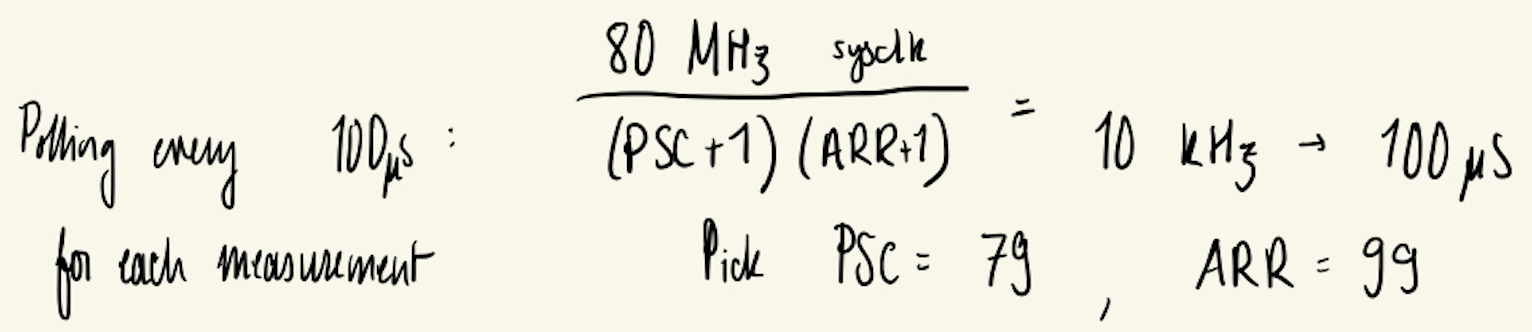 80 MHz sysclk
Polling every 100µs : (PSC+1) (ARR+1) = 10 kHz → 100 µs
for each measurement Pick PSC = 79 , ARR = 99